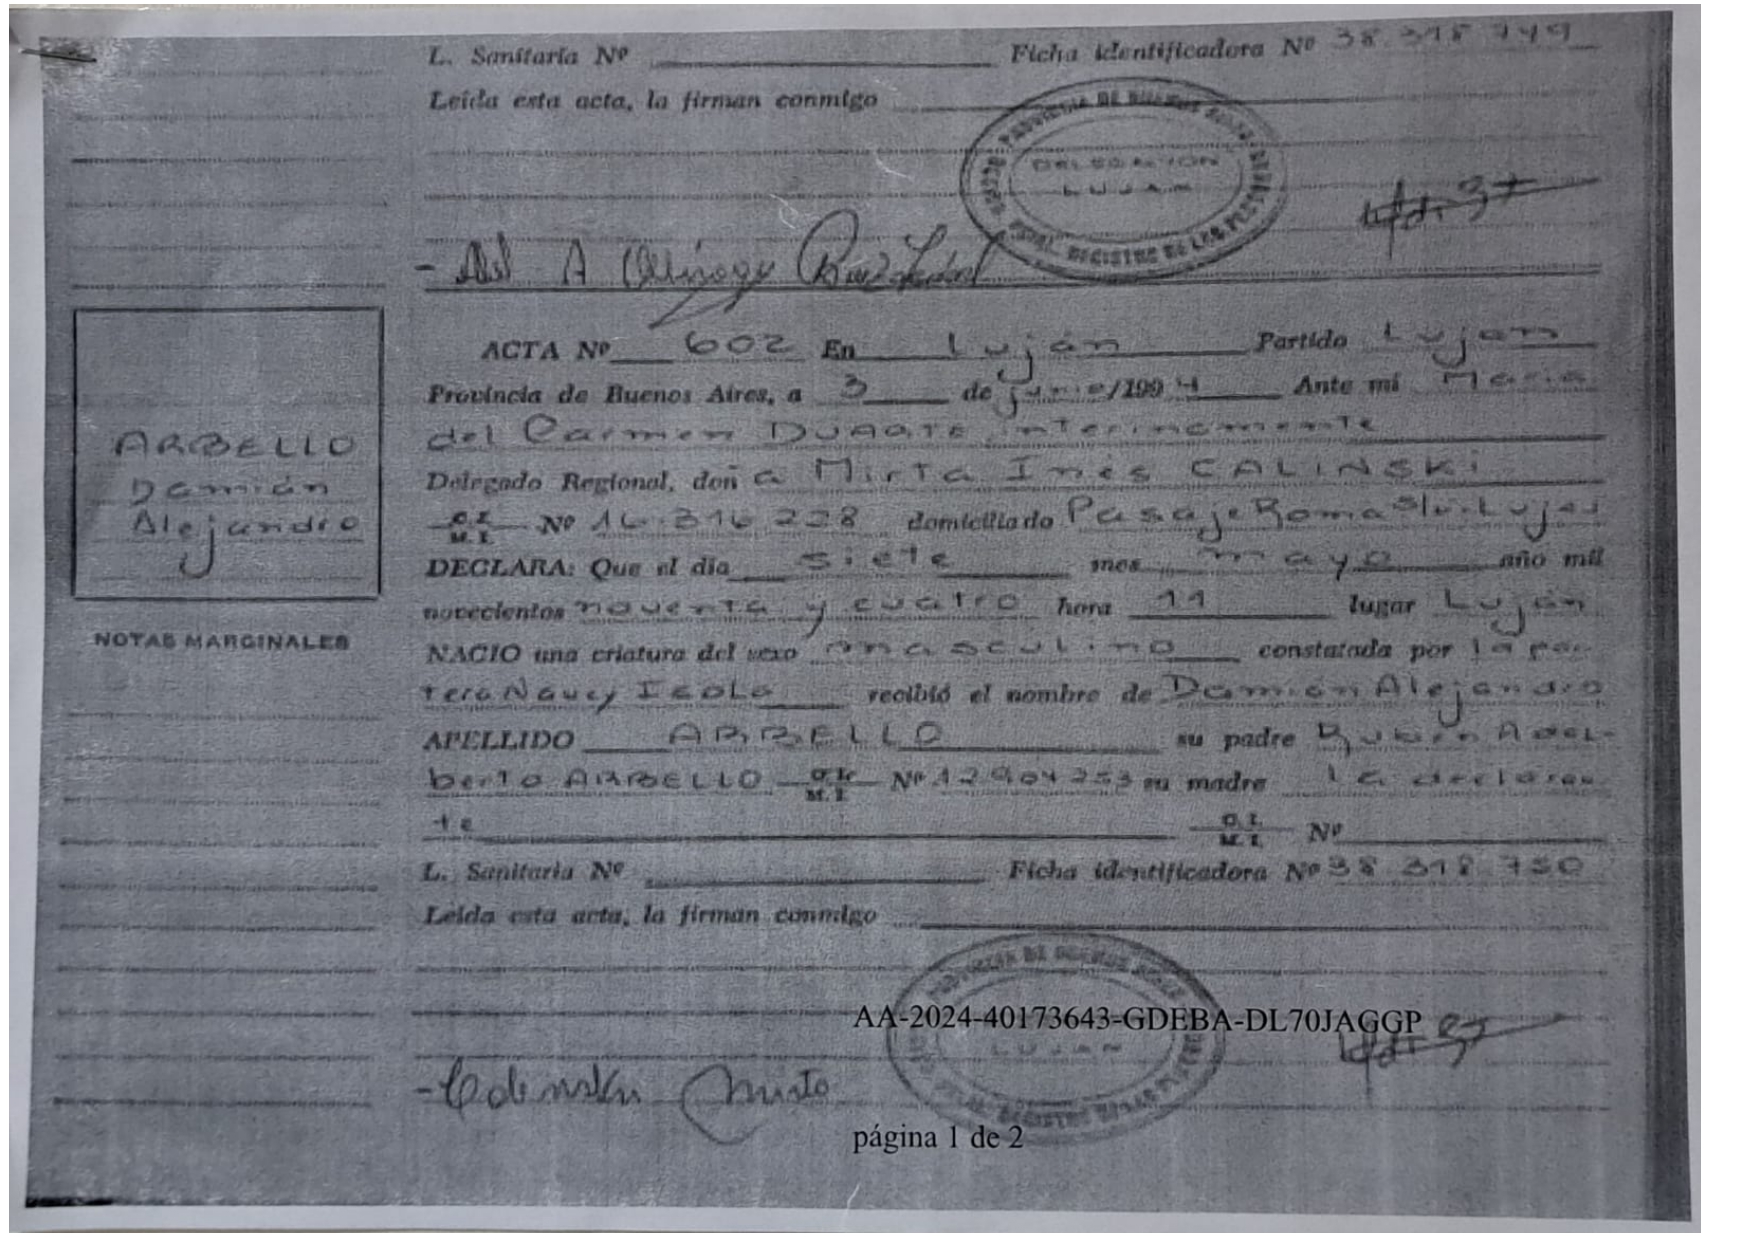 L. Sanitaria Nº Ficha identificadora Nº 38.318.749
Leída esta acta, la firman conmigo
PROVINCIA DE BUENOS AIRES
DELEGACION
LUJAN
REGISTRO DE LAS PERSONAS
ACTA Nº 602 En Luján Partido Lujan
Provincia de Buenos Aires, a 3 de junio/1994 Ante mí Maria
del Carmen DUARTE interinamente
Delegado Regional, doña Mirta Inés CALINSKI
M. I. Nº 16.316.228 domiciliado Pasaje Roma s/n. Lujan
DECLARA: Que el día siete mes mayo año mil
novecientos noventa y cuatro hora 11 lugar Luján
NACIO una criatura del sexo masculino constatada por la par-
tera Nancy Isola recibió el nombre de Damián Alejandro
APELLIDO ARBELLO su padre Rubén Adel-
berto ARBELLO M. I. Nº 12904253 su madre la declaran
te M. I. Nº
L. Sanitaria Nº Ficha identificadora Nº 38.318.750
Leída esta acta, la firman conmigo
ARBELLO
Damián
Alejandro
NOTAS MARGINALES
PROVINCIA DE BUENOS AIRES
AA-2024-40173643-GDEBA-DL70JAGGP
LUJAN
REGISTRO DE LAS PERSONAS
página 1 de 2